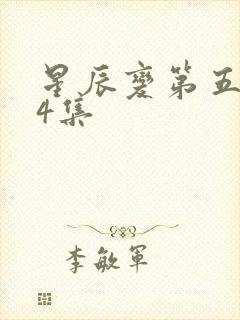 星辰变第五
4集
李敏军